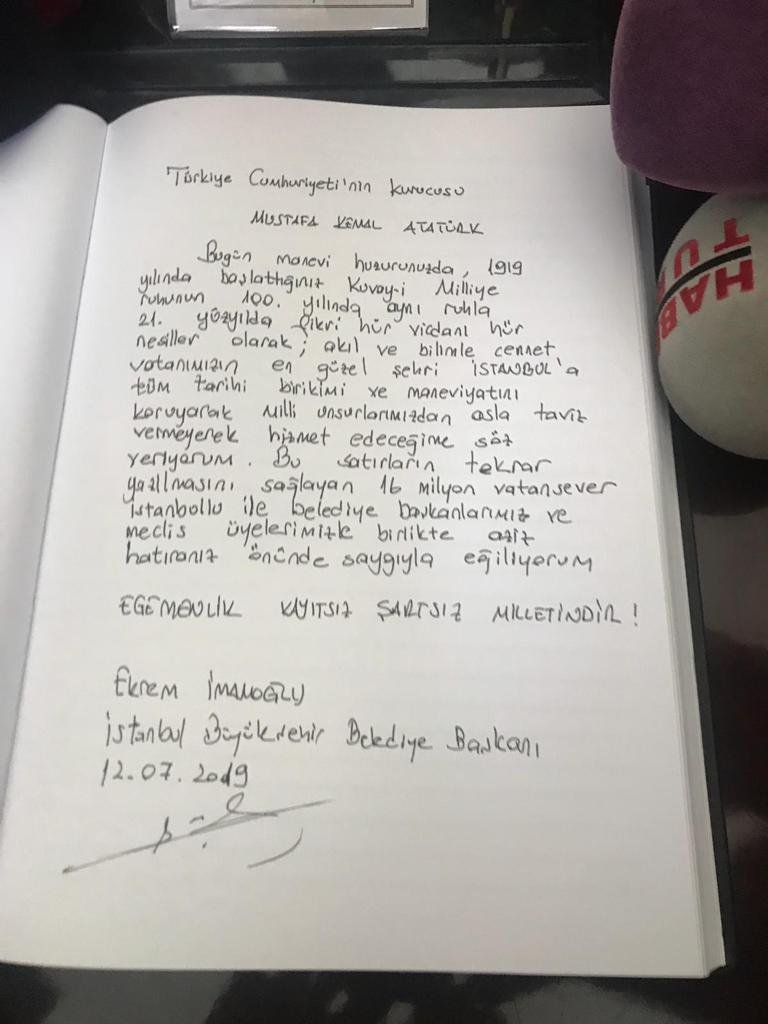 Türkiye Cumhuriyeti'nin kurucusu
MUSTAFA KEMAL ATATÜRK
Bugün manevi huzurunuzda, 1919
yılında başlattığınız Kuvay-i Milliye
ruhunun 100. yılında aynı ruhla
21. yüzyılda fikri hür vicdanı hür
nesiller olarak; akıl ve bilimle cennet
vatanımızın en güzel şehri İSTANBUL'a
tüm tarihi birikimi ve maneviyatını
koruyarak Milli unsurlarımızdan asla taviz
vermeyerek hizmet edeceğime söz
veriyorum. Bu satırların tekrar
yazılmasını sağlayan 16 milyon vatansever
İstanbullu ile belediye başkanlarımız ve
meclis üyelerimizle birlikte aziz
hatıranız önünde saygıyla eğiliyorum
EGEMENLİK KAYITSIZ ŞARTSIZ MİLLETİNDİR!
Ekrem İMAMOĞLU
İstanbul Büyükşehir Belediye Başkanı
12.07.2019
HAB
TÜR